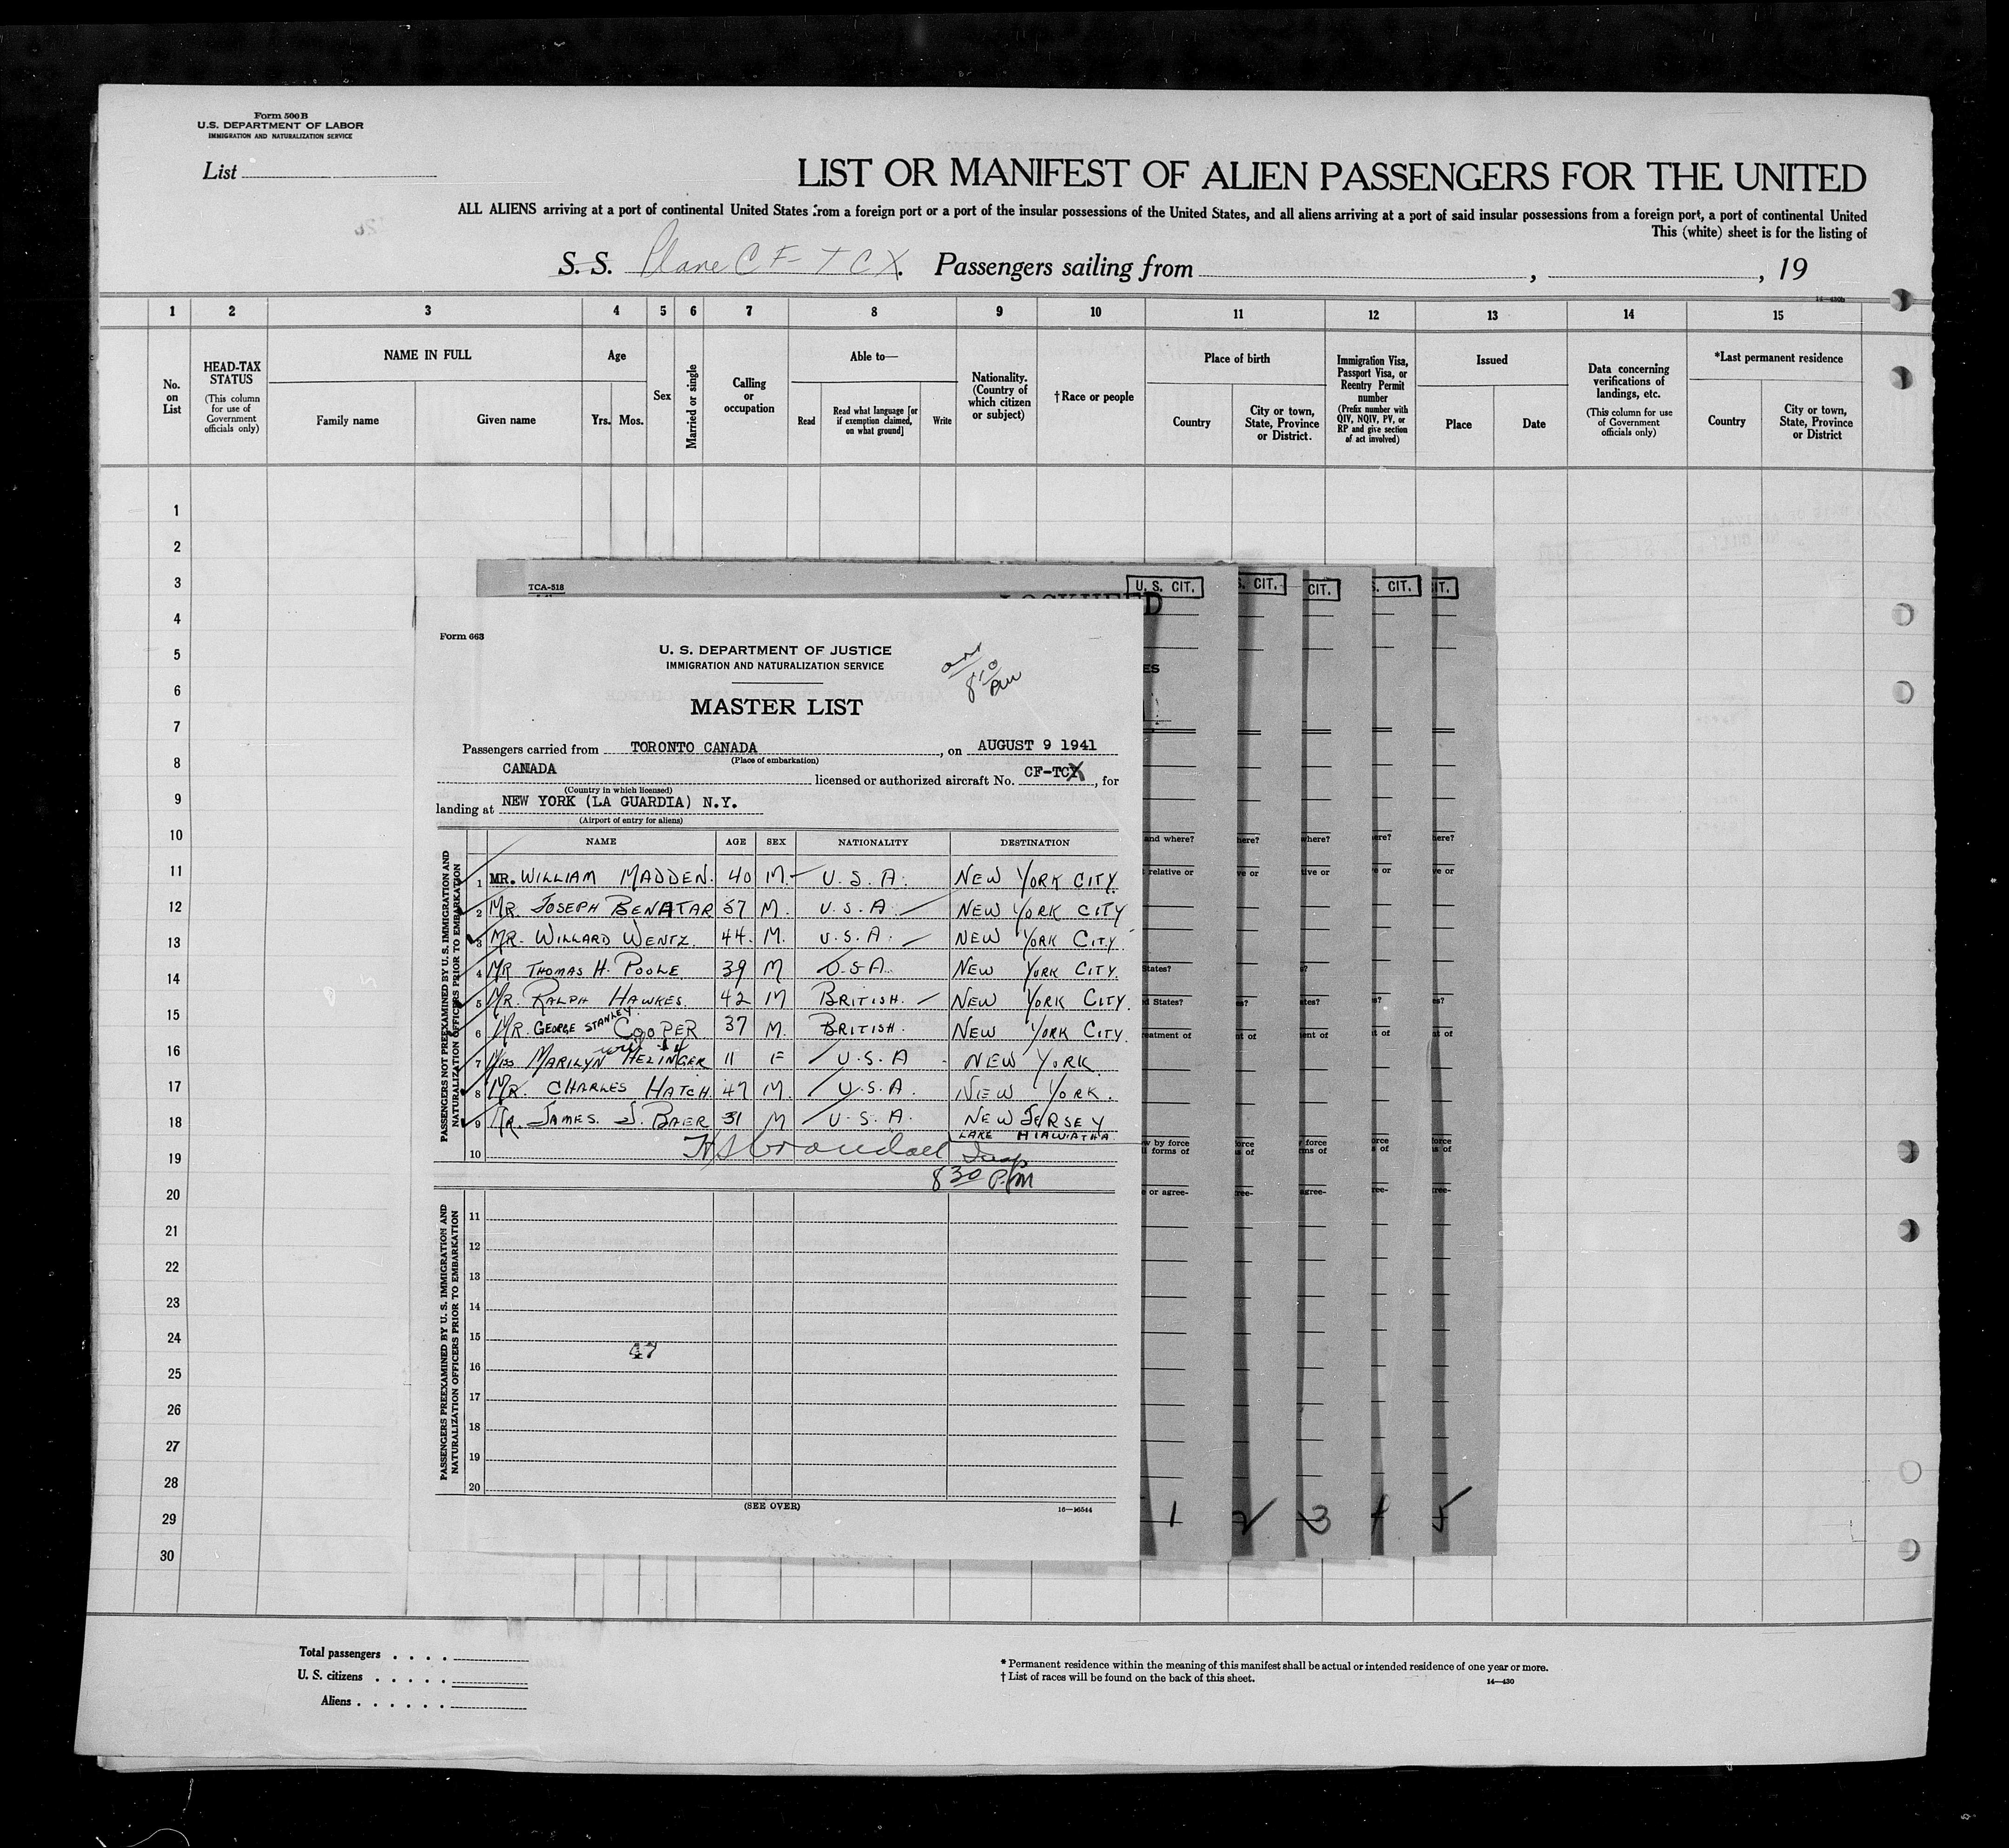 Form 500 B
U.S. DEPARTMENT OF LABOR
IMMIGRATION AND NATURALIZATION SERVICE
List
LIST OR MANIFEST OF ALIEN PASSENGERS FOR THE UNITED
ALL ALIENS arriving at a port of continental United States from a foreign port or a port of the insular possessions of the United States, and all aliens arriving at a port of said insular possessions from a foreign port, a port of continental United
This (white) sheet is for the listing of
S. S. Plane CF-TCX. Passengers sailing from , , 19
14—430b
1 2 3 4 5 6 7 8 9 10 11 12 13 14 15
No. on List
HEAD-TAX STATUS
(This column for use of Government officials only)
NAME IN FULL
Family name Given name
Age
Yrs. Mos.
Sex
Married or single
Calling or occupation
Able to—
Read
Read what language [or if exemption claimed, on what ground]
Write
Nationality. (Country of which citizen or subject)
†Race or people
Place of birth
Country
City or town, State, Province or District.
Immigration Visa, Passport Visa, or Reentry Permit number
(Prefix number with QIV, NQIV, PV, or RP and give section of act involved)
Issued
Place Date
Data concerning verifications of landings, etc.
(This column for use of Government officials only)
*Last permanent residence
Country
City or town, State, Province or District
1
2
3
4
5
6
7
8
9
10
11
12
13
14
15
16
17
18
19
20
21
22
23
24
25
26
27
28
29
30
TCA-518
U. S. CIT. S. CIT. CIT. S. CIT. IT.
Form 663
U. S. DEPARTMENT OF JUSTICE
IMMIGRATION AND NATURALIZATION SERVICE
arr 8 10 PM
MASTER LIST
Passengers carried from TORONTO CANADA , on AUGUST 9 1941
(Place of embarkation)
CANADA licensed or authorized aircraft No. CF-TCX , for
(Country in which licensed)
landing at NEW YORK (LA GUARDIA) N.Y.
(Airport of entry for aliens)
NAME AGE SEX NATIONALITY DESTINATION
PASSENGERS NOT PREEXAMINED BY U. S. IMMIGRATION AND NATURALIZATION OFFICERS PRIOR TO EMBARKATION
1 MR. WILLIAM MADDEN. 40 M. U.S.A. NEW YORK CITY.
2 MR. JOSEPH BENATAR 57 M. U.S.A. NEW YORK CITY
3 MR. WILLARD WENTZ. 44. M. U.S.A. NEW YORK CITY.
4 MR THOMAS H. POOLE 39 M U.S.A. NEW YORK CITY.
5 MR. RALPH HAWKES. 42 M BRITISH. NEW YORK CITY.
6 MR. GEORGE STANLEY COOPER 37 M. BRITISH. NEW YORK CITY.
7 MISS MARILYN HELINGER 11 F U.S.A NEW YORK.
8 MR. CHARLES HATCH. 47 M. U.S.A. NEW YORK.
9 MR. JAMES. J. BAER 31 M U.S.A. NEW JERSEY
LAKE HIAWATHA
10 Insp
8 30 P.M
PASSENGERS PREEXAMINED BY U. S. IMMIGRATION AND NATURALIZATION OFFICERS PRIOR TO EMBARKATION
11
12
13
14
15
47
16
17
18
19
20
(SEE OVER)
16—16544
and where? here? where? ere? here?
relative or ve or tive or e or ve or
States?
d States? es? ates? s? es?
eatment of nt of ent of t of nt of
w by force orce force orce force
l forms of s of rms of s of s of
e or agree- ree- agree- ree- ree-
1 2 3 4 5
Total passengers
U. S. citizens
Aliens
* Permanent residence within the meaning of this manifest shall be actual or intended residence of one year or more.
† List of races will be found on the back of this sheet.
14—430